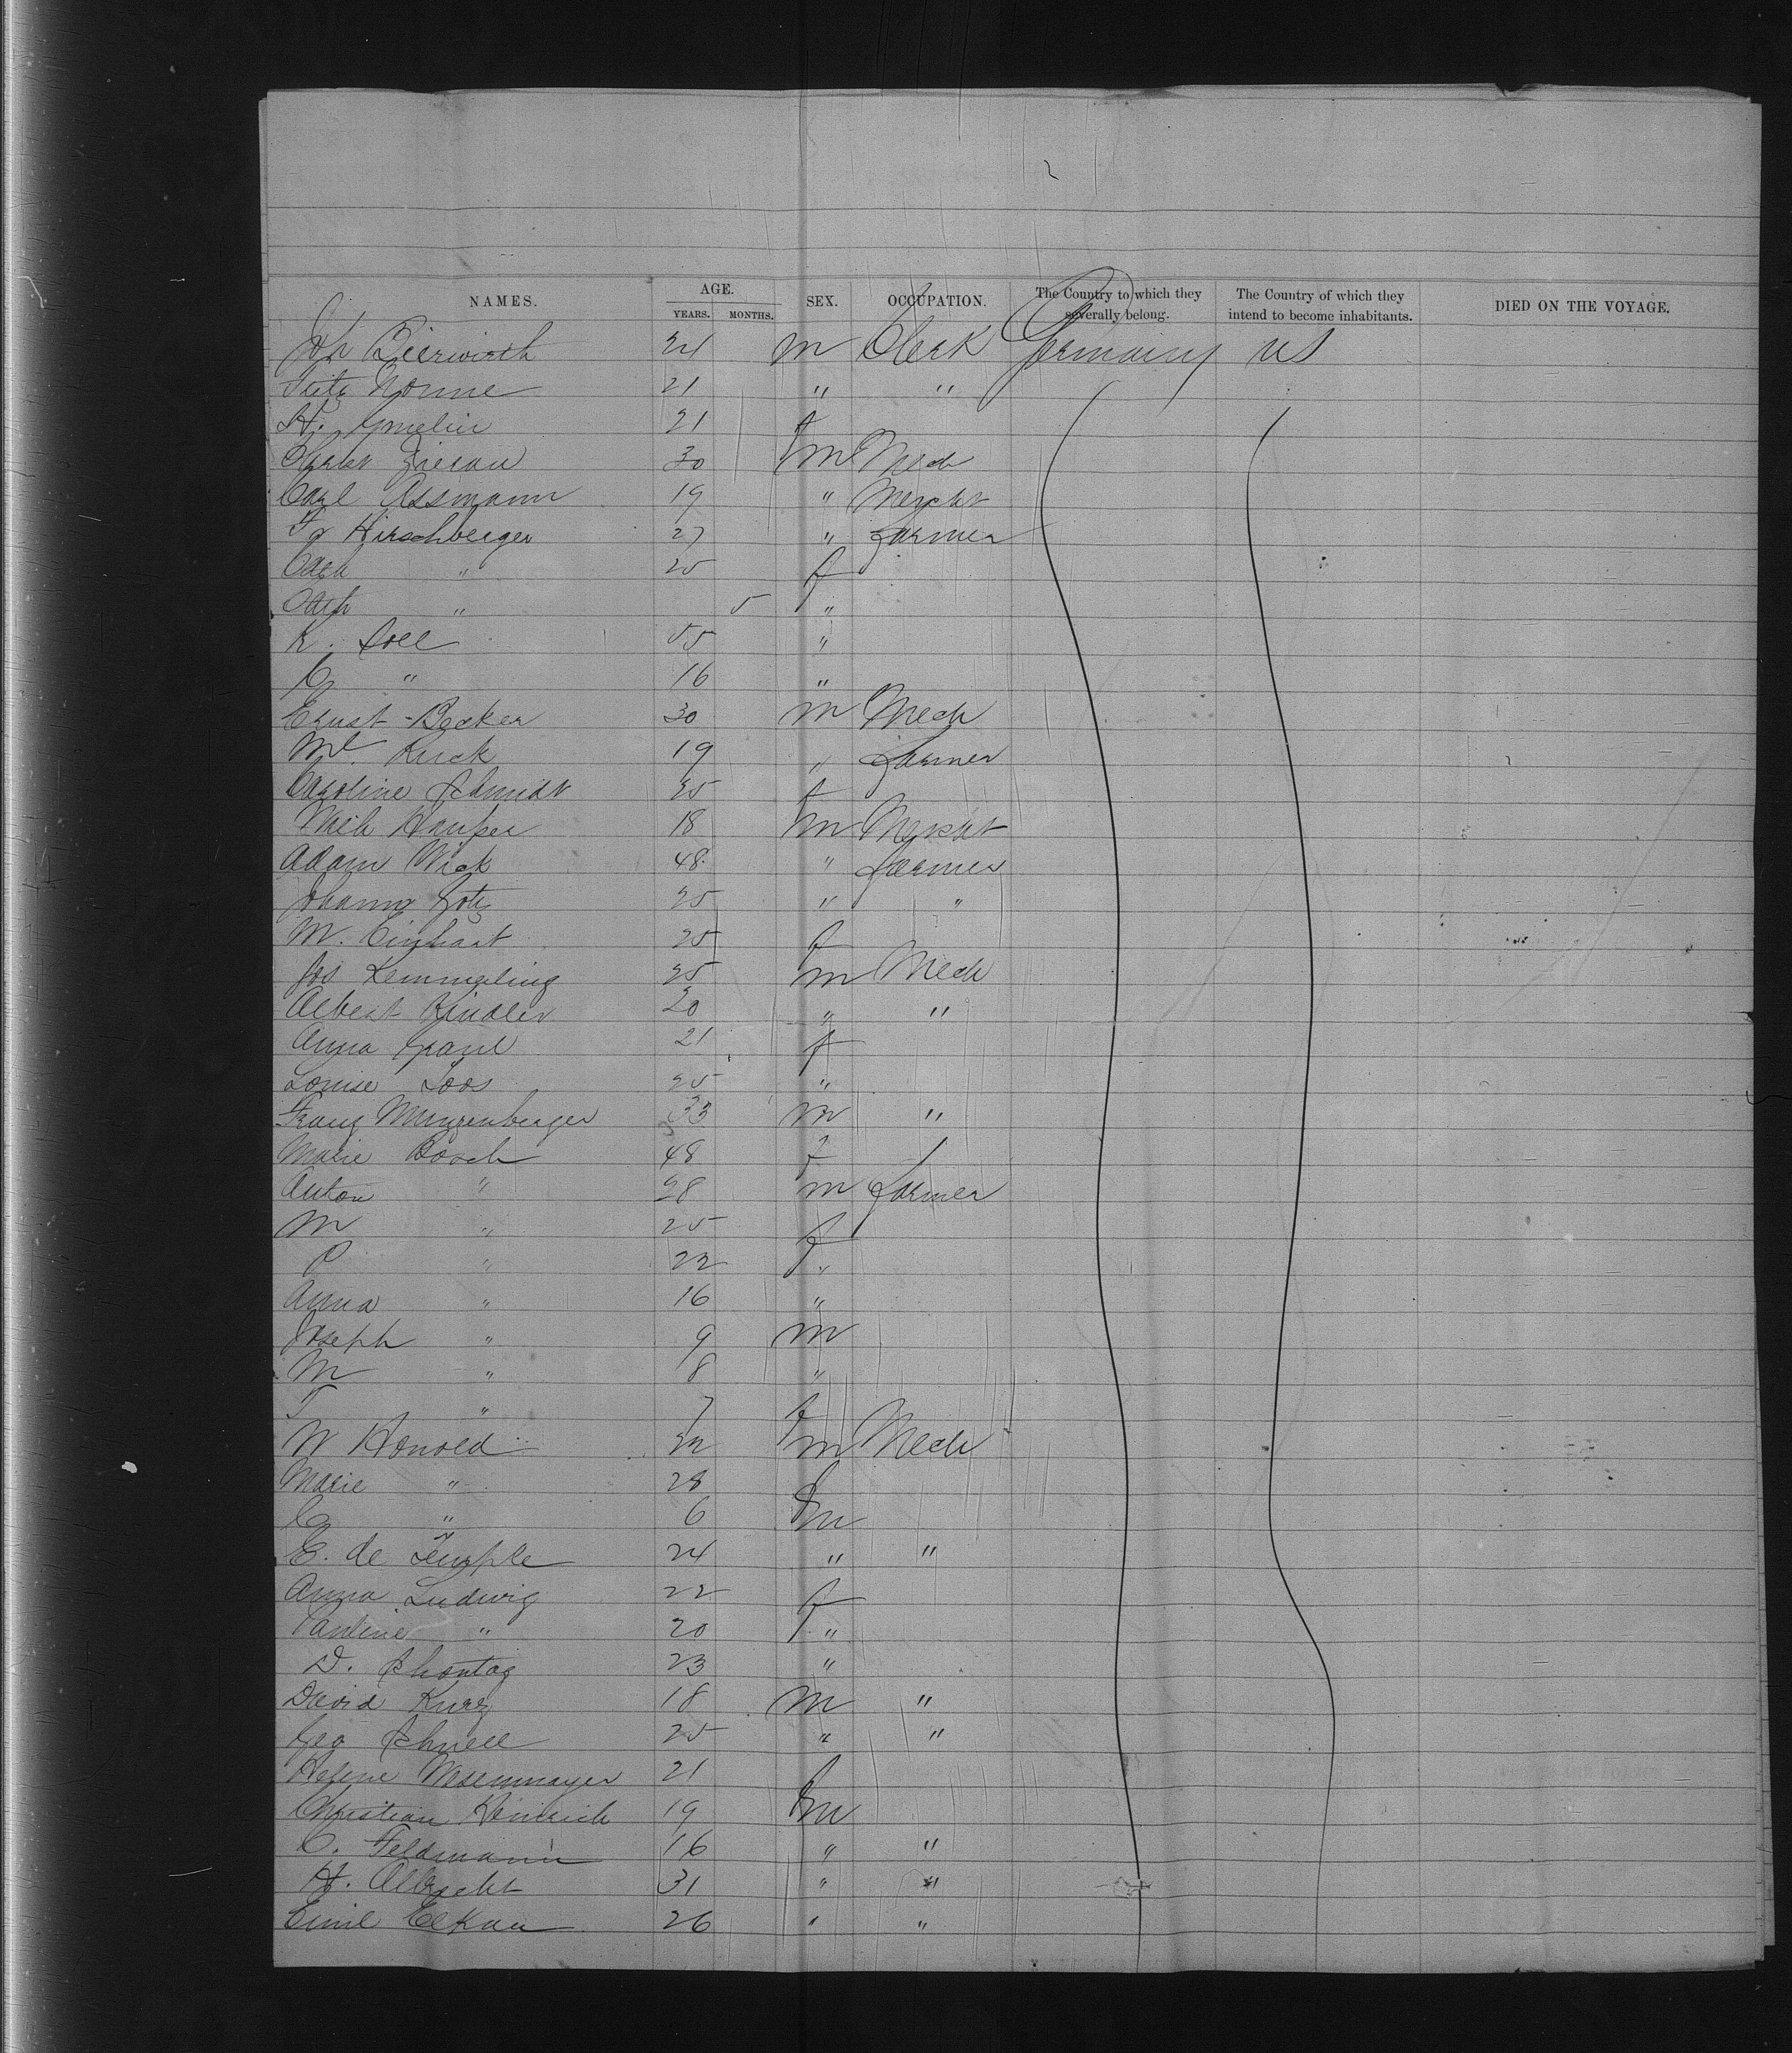 NAMES. AGE. YEARS. MONTHS. SEX. OCCUPATION. The Country to which they severally belong. The Country of which they intend to become inhabitants. DIED ON THE VOYAGE.
Joh Bierwirth 24 m Clerk Germany US
Fritz Nonne 21 " "
H. Gmelin 21 f
Christ Zierau 30 m Mech
Carl Assmann 19 " Mercht
Fr Hirschberger 27 " Farmer
Cath " 25 f
Cath " 5 "
K. Soll 55 "
C " 16 "
Ernst Becker 30 m Mech
Kuck 19 " Farmer
Caroline Schmidt 25 f
18 m Mercht
Adam Wick 48 " Farmer
Johann Gotz 25 " "
M. 25 f
Jos Kemmerling 25 m Mech
Albert Kindler 20 " "
Anna Graul 21 f
Louise Loos 25 "
Franz Munzenberger 33 m "
Marie Bosch 48 f
Anton " 28 m Farmer
M " 25 f
" 22 "
Anna " 16 "
Joseph " 9 m
M " 8 "
T " 7 f
W Honold 32 m Mech
Marie " 28 f
C " 6 m
E. de Temple 24 " "
Anna Ludwig 22 f
Pauline " 20 "
D. Schontag 23 "
David Kurz 18 m "
Geo Schnell 25 " "
Helene 21 f
Christian Heinrich 19 m
C. Feldmann 16 " "
H. Albrecht 31 " "
Emil Elkan 26 " "